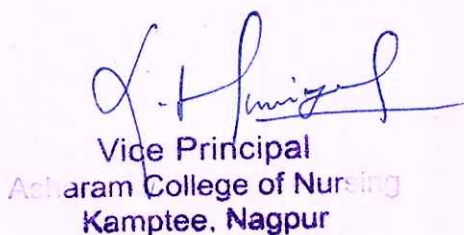 Vice Principal
Asharam College of Nursing
Kamptee, Nagpur